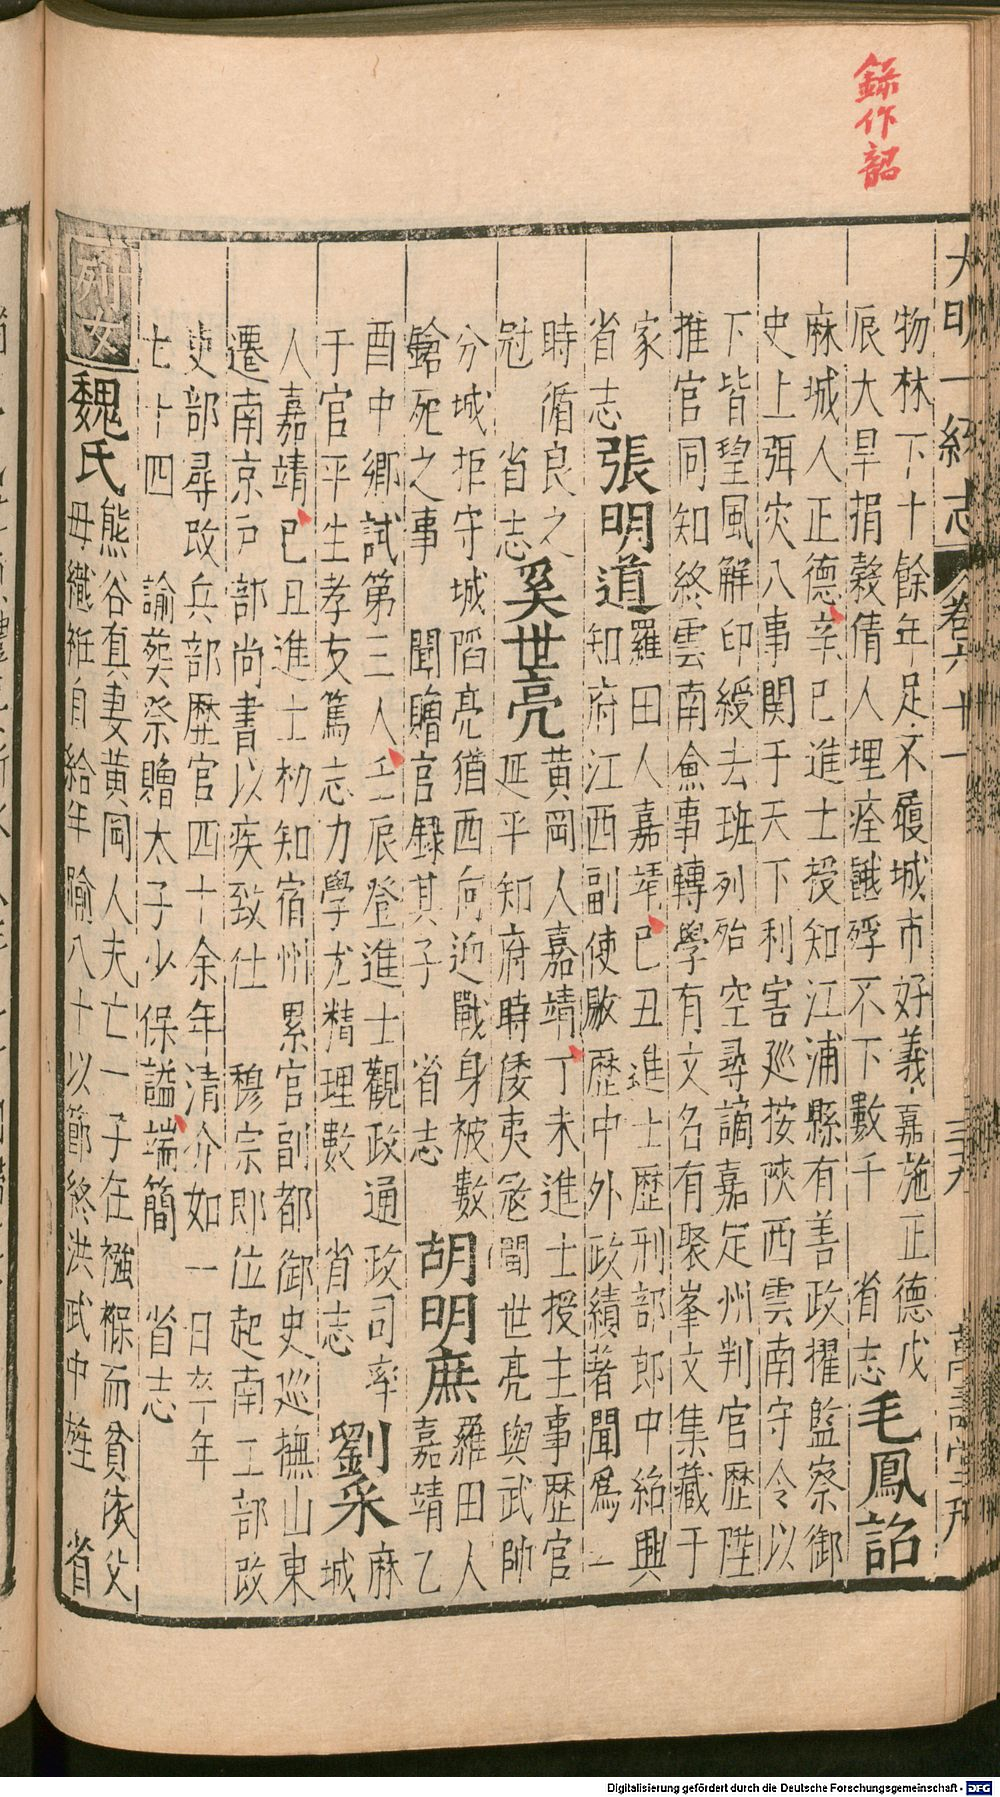 録作韶
大明一統志 卷六十一 三九 萬壽堂刊
物林下十餘年足不履城市好義嘉施正德戊
辰大旱捐穀倩人埋痊譏殍不下數千 省志 毛鳳詔
麻城人正德辛巳進士授知江浦縣有善政擢監察御
史上弭灾八事関于天下利害廵按陝西雲南守令以
下皆望風解印綬去班列殆空尋謫嘉定州判官歷陞
推官同知終雲南僉事轉學有文名有聚峯文集藏于
家
省志 張明道 羅田人嘉靖己丑進士歷刑部郎中紹興
知府江西副使敭歷中外政績著聞為一
時循良之
冠 省志 奚世亮 黄岡人嘉靖丁未進士授主事歷官
延平知府時倭夷𡨥聞世亮與武帥
分城拒守城䧟亮猶西向迎戰身被數
鎗死之事 聞贈官録其子 省志 胡明庶 羅田人
嘉靖乙
酉中鄉試第三人壬辰登進士觀政通政司率
于官平生孝友篤志力學尤精理數 省志 劉采 麻
城
人嘉靖己丑進士初知宿州累官副都御史巡撫山東
遷南京戶部尚書以疾致仕 穆宗即位起南工部改
吏部尋改兵部歷官四十余年清介如一日卒年
七十四 諭葬祭贈太子少保謚端簡 省志
列女 魏氏 熊谷真妻黄岡人夫亡一子在襁褓而貧依父
母織袵自給年踰八十以節終洪武中旌 省
Digitalisierung gefördert durch die Deutsche Forschungsgemeinschaft - DFG